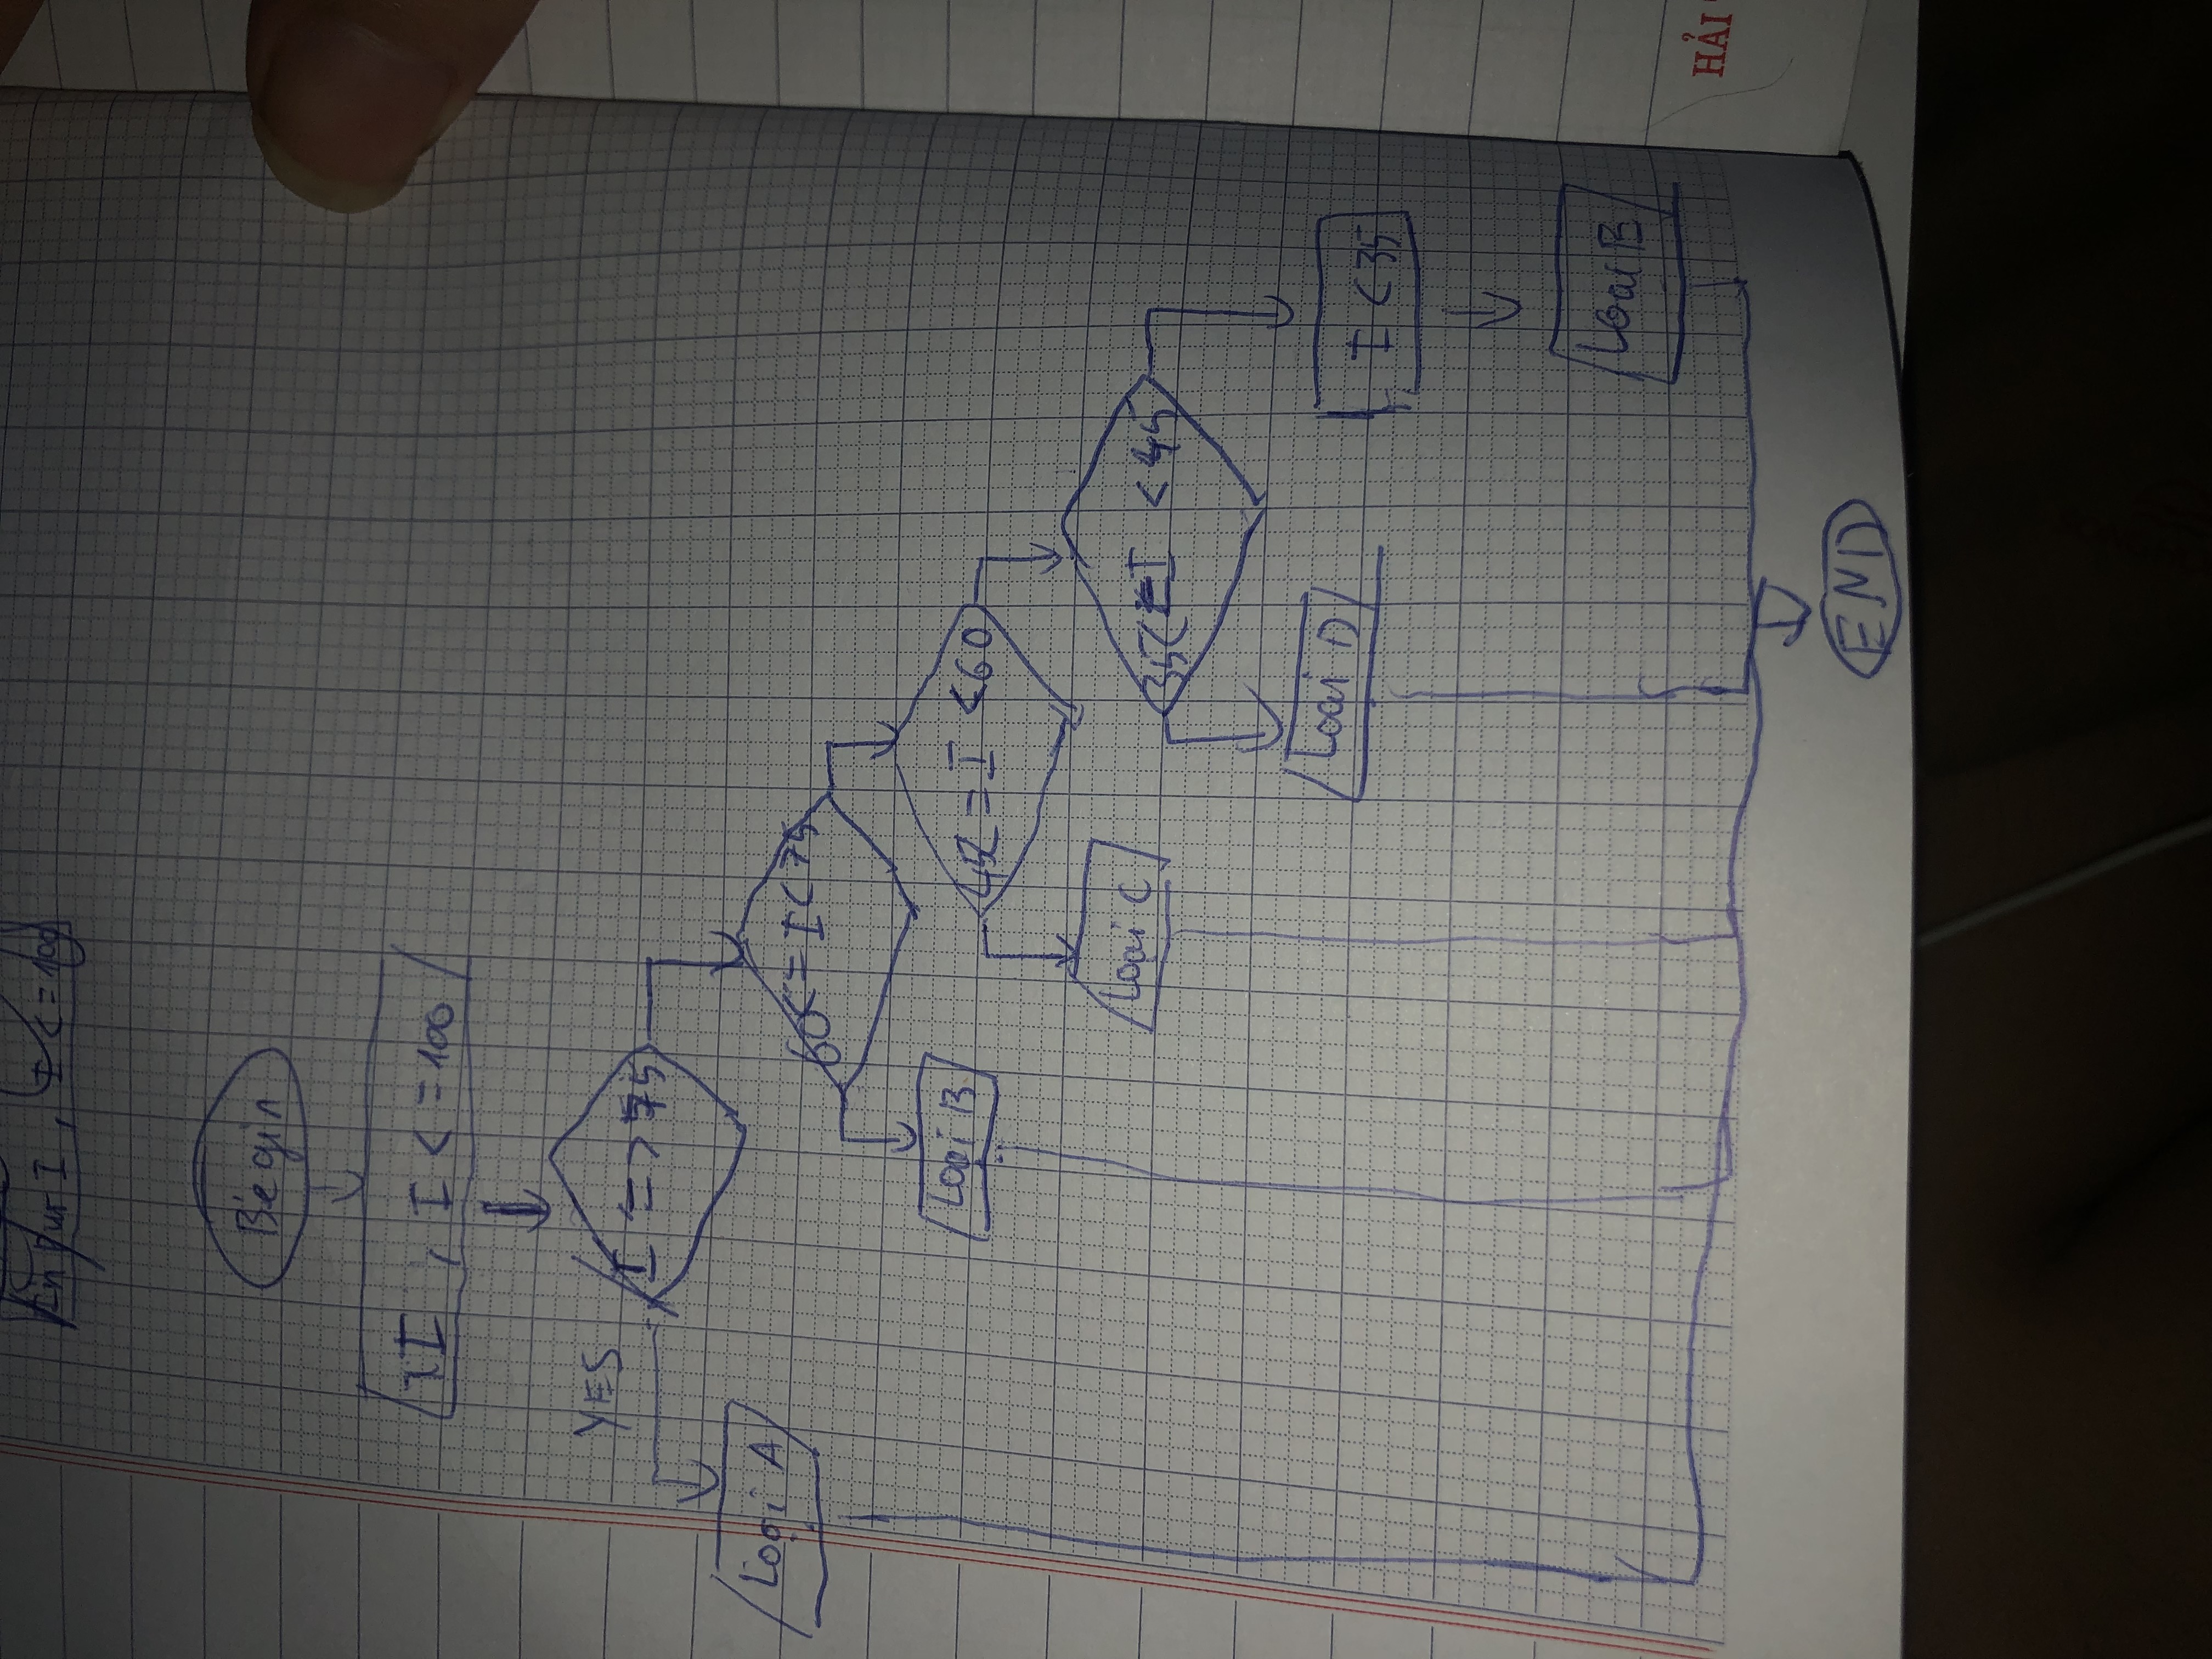 I, I <= 100
Begin
I , I < = 100
YES
I = > 75
Logi A
60 <= I < 75
Logi B
45 <= I < 60
Loai C
35 <= I < 45
Loai D
I < 35
Loai E
END
HẢI